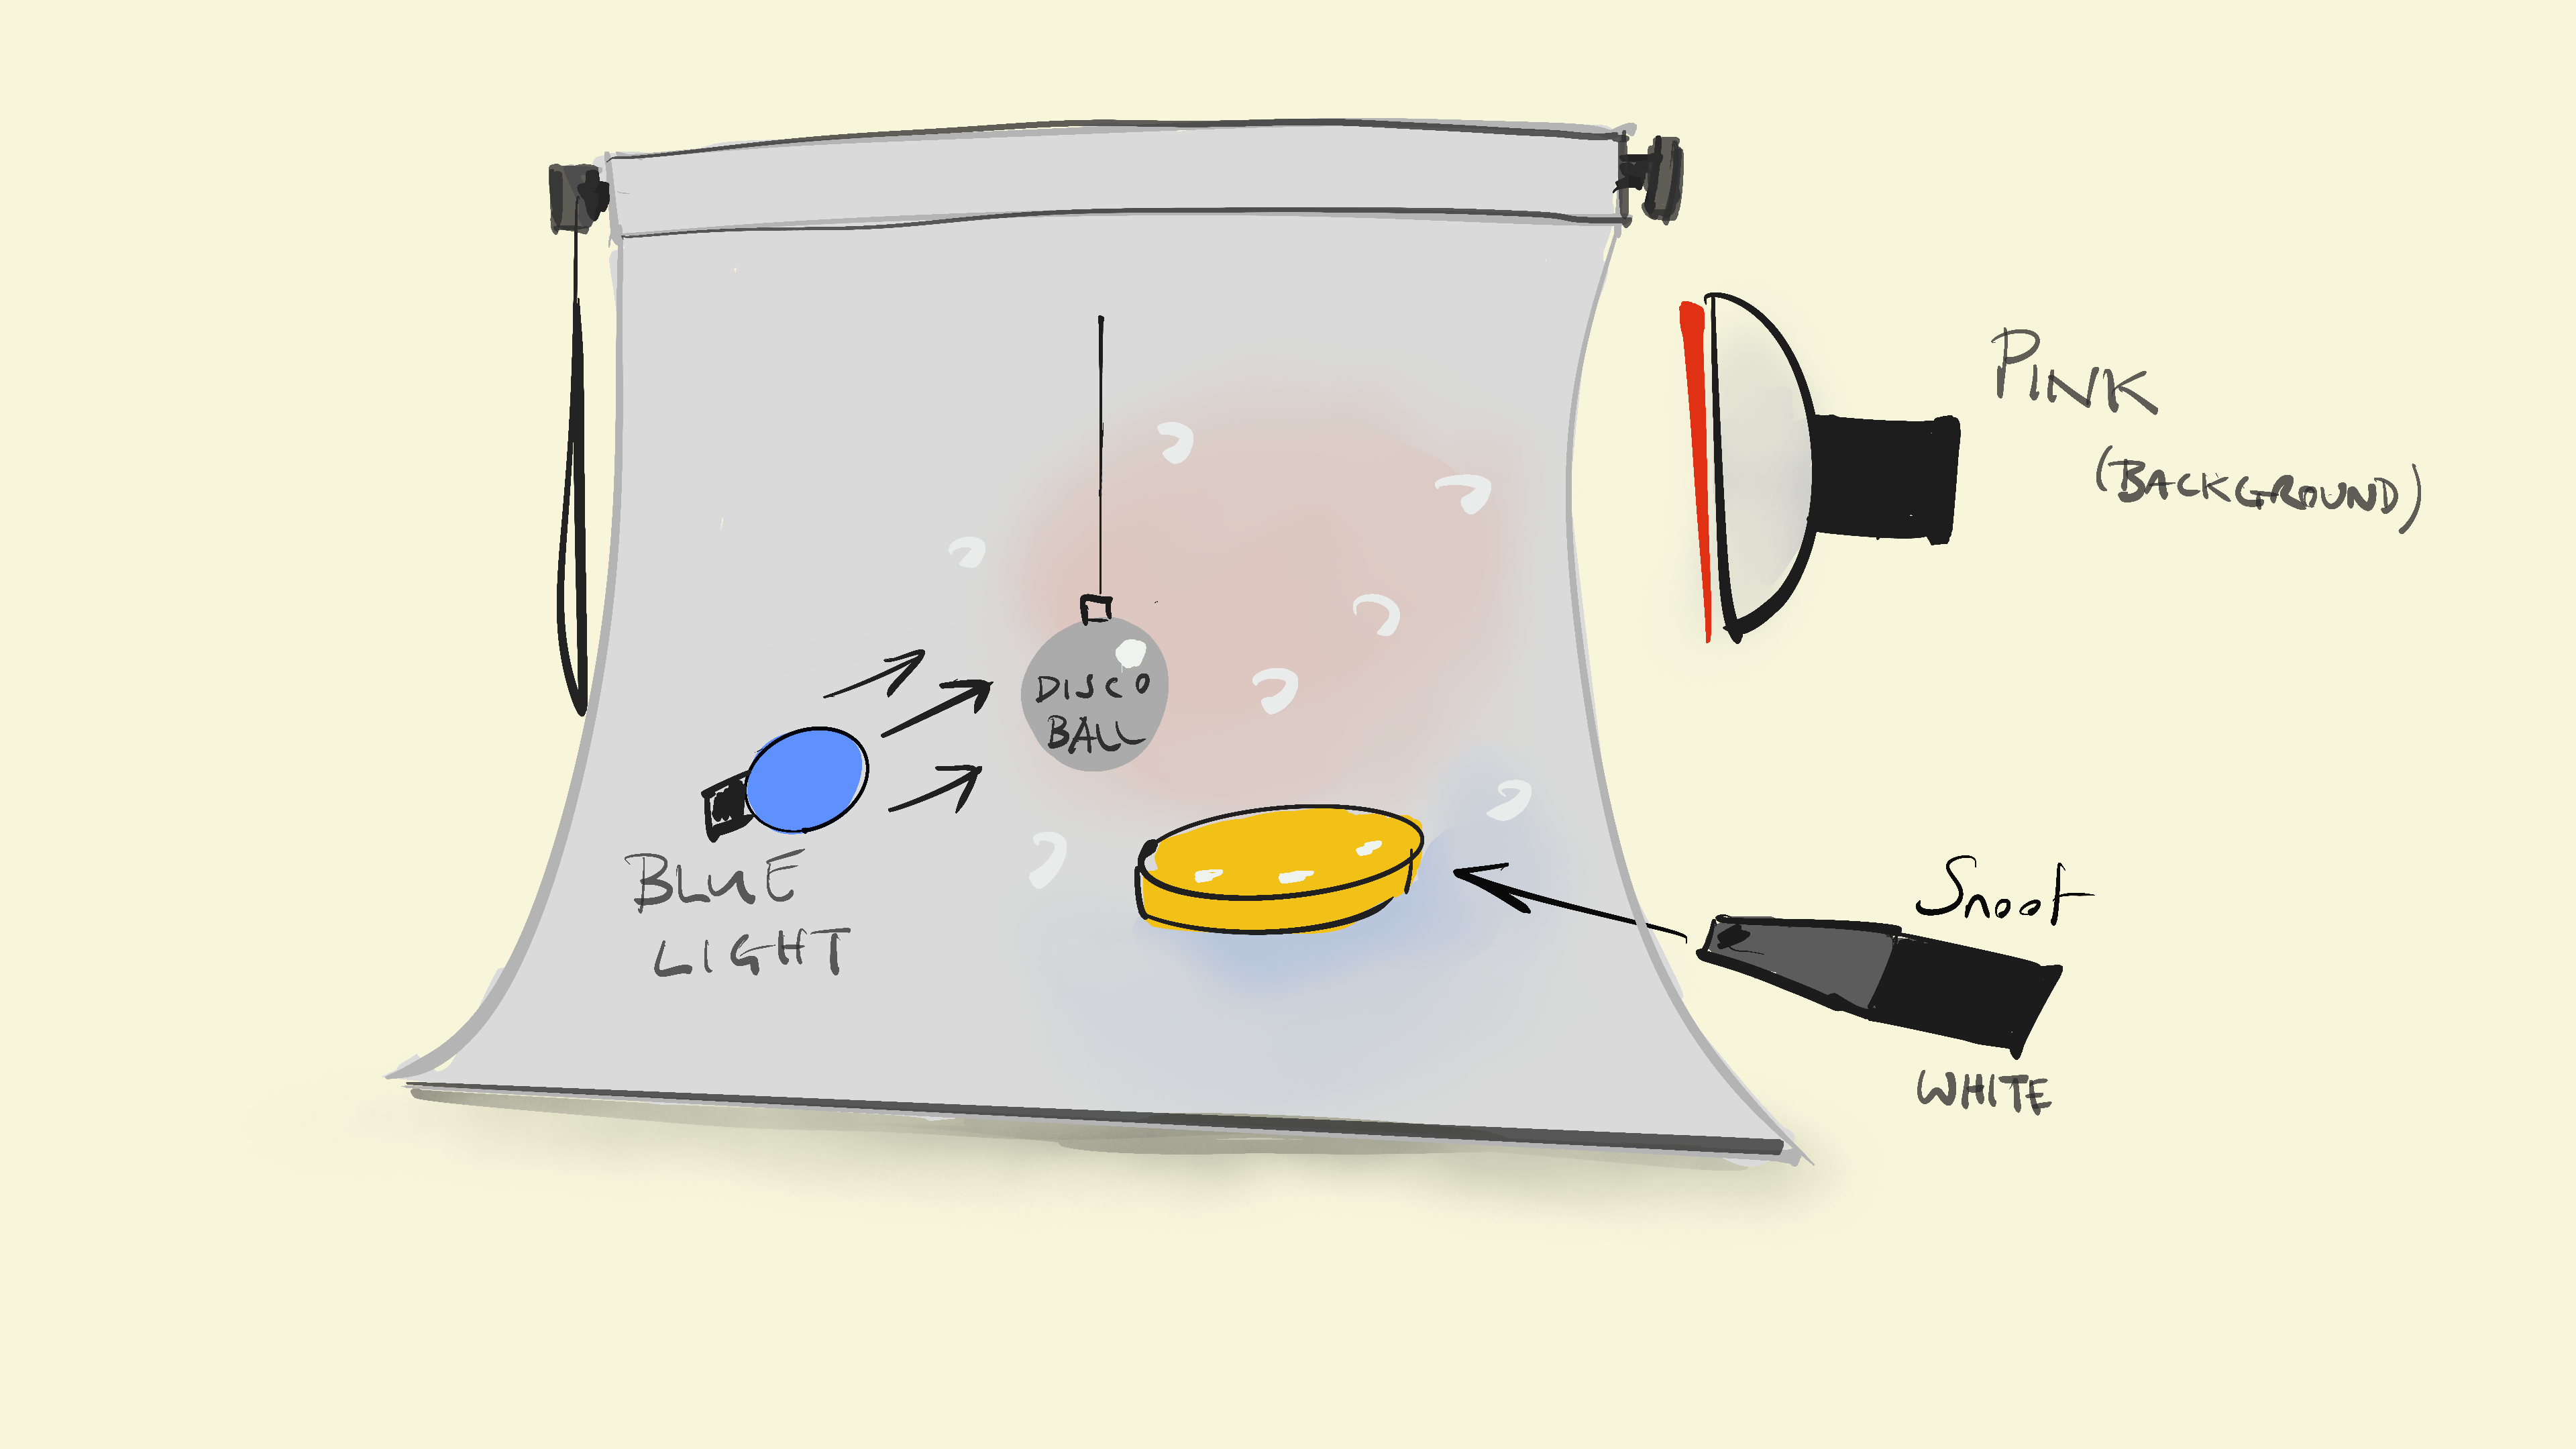 PINK
(BACKGROUND)
DISCO
BALL
BLUE
LIGHT
Snoot
WHITE